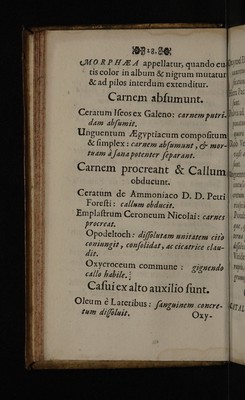 28.
MORPHÆA appellatur, quando cu-
tis color in album & nigrum mutatur
& ad pilos interdum extenditur.
Carnem absumunt.
Ceratum Iseos ex Galeno: carnem putri-
dam absumit.
Unguentum Ægyptiacum compositum
& simplex: carnem absumunt, & mor-
tuam à sana potenter separant.
Carnem procreant & Callum
obducunt.
Ceratum de Ammoniaco D. D. Petri
Foresti: callum obducit.
Emplastrum Ceroneum Nicolai: carnes
procreat.
Opodeltoch: dissolutam unitatem citò
coniungit, consolidat, ac cicatrice clau-
dit.
Oxycroceum commune: gignendo
callo habile.
Casui ex alto auxilio sunt.
Oleum è Lateribus: sanguinem concre-
tum dissoluit.
Oxy-